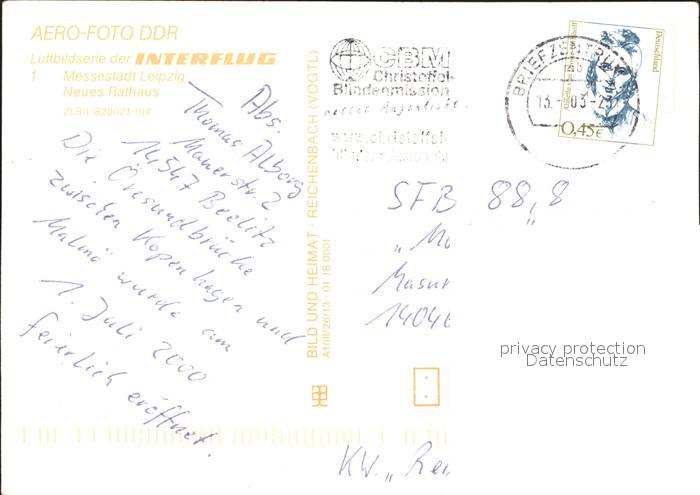 AERO-FOTO DDR
Luftbildserie der INTERFLUG
1 Messestadt Leipzig
Neues Rathaus
ZLB/L 820021-104
Abs.
Thomas Alborg
Mauerstr. 2
14547 Beelitz
Die Öresundbrücke
zwischen Kopenhagen und
Malmö wurde am
1. Juli 2000
feierlich eröffnet.
BILD UND HEIMAT · REICHENBACH (VOGTL)
A1/III/26/13 · 01 18 0001
CBM
Christoffel-
Blindenmission
rettet Augenlicht
www.christoffel-
BRIEFZENTRUM
13.
03-21
Deutschland
0,45€
SFB 88,8
„Mo
Masur
14046
KW. „Rei
privacy protection
Datenschutz